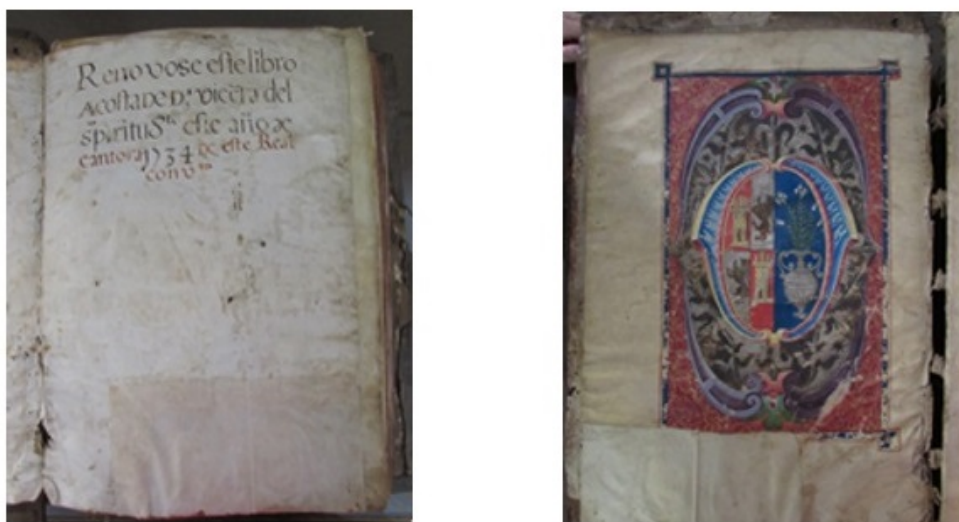 Renovose este libro
Acosta De D.ª vicẽta del
spirituS.to este año de
cantora 1734 de este Real
conv.to